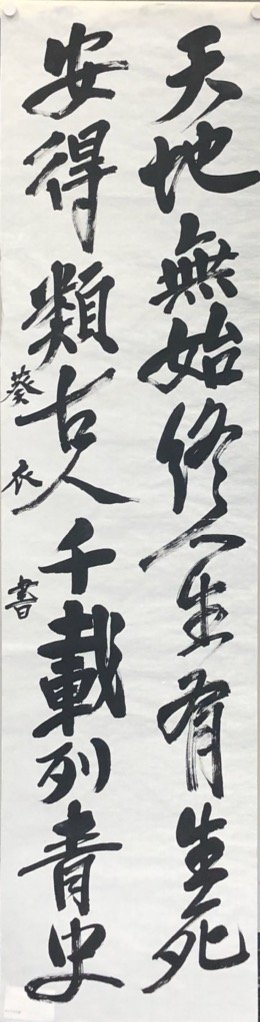 天地無始終人生有生死
安得類古人千載列青史
葵衣書